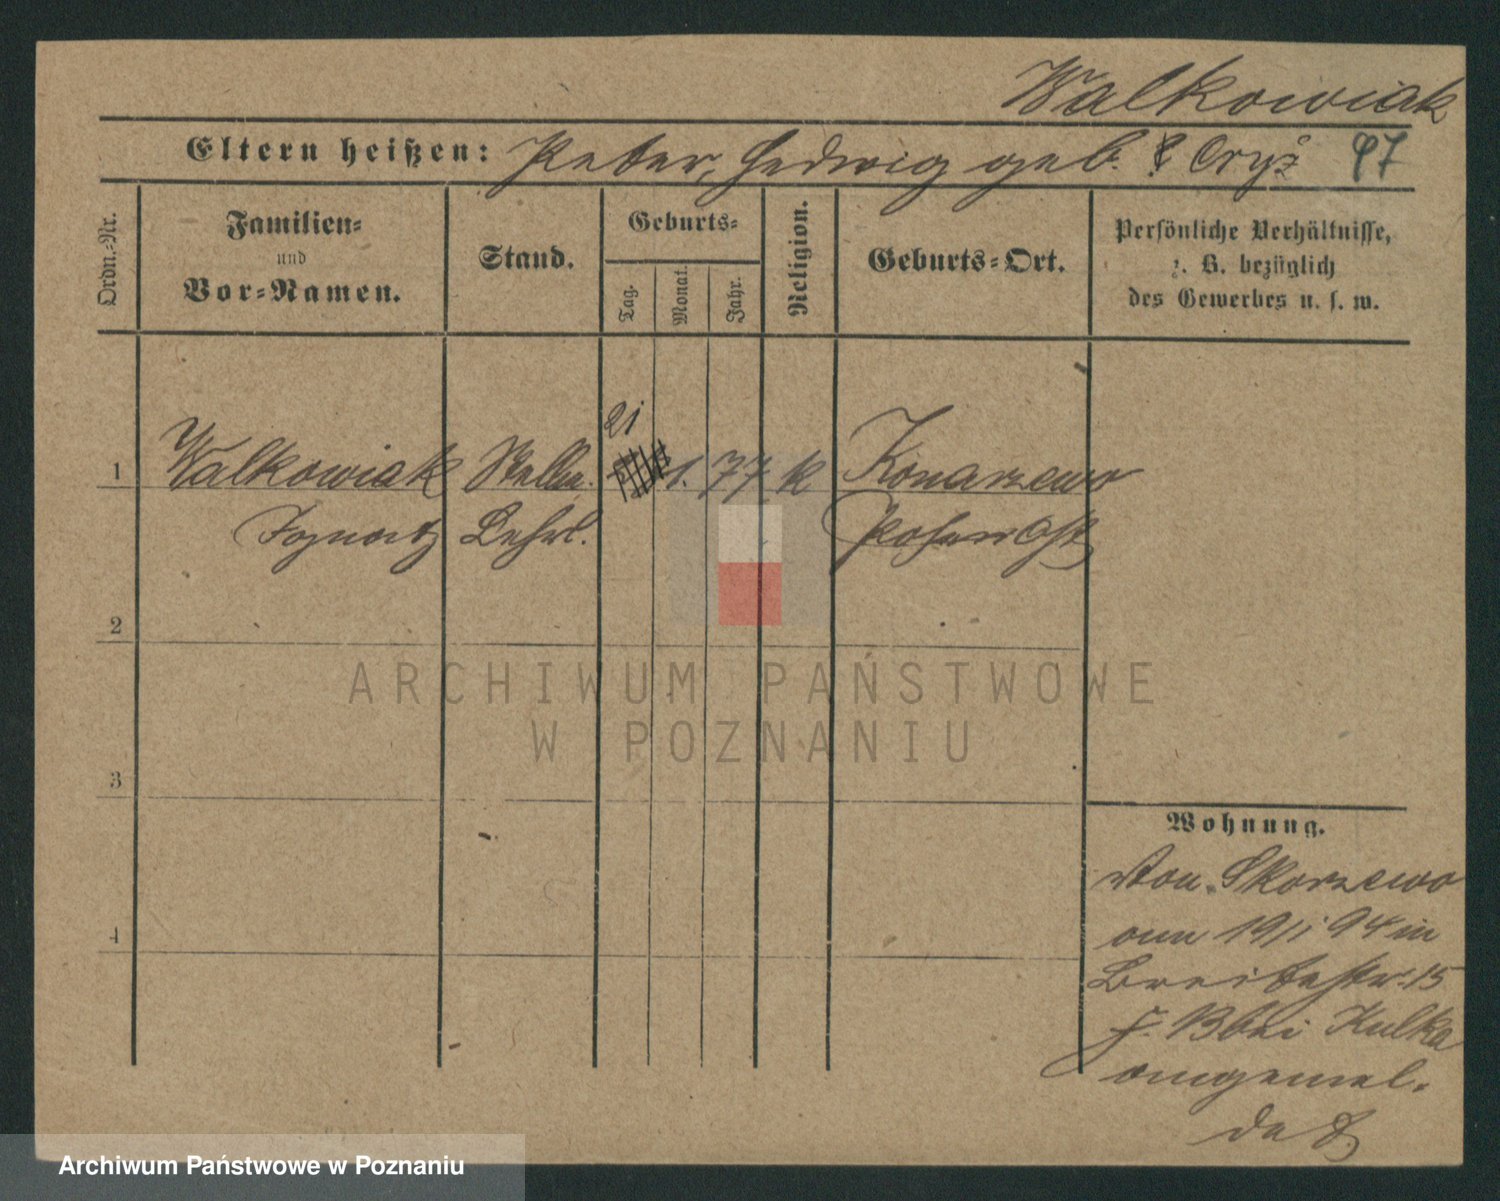 Walkowiak
Eltern heißen: Peter, Hedwig geb. Cryż 97
Ordn.-Nr.
Familien-
und
Vor-Namen.
Stand.
Geburts-
Tag.
Monat.
Jahr.
Religion.
Geburts-Ort.
Persönliche Verhältnisse,
z. B. bezüglich
des Gewerbes u. s. w.
21
1 Walkowiak Stellm. 1. 77 k Konarzewo
Ignatz Lehrl. Posen Ost
2
3
4
Wohnung.
Von Skorzewo
am 19/1 94 in
Breitestr. 15
bei Kulka
angemel.
det
ARCHIWUM PAŃSTWOWE
W POZNANIU
Archiwum Państwowe w Poznaniu